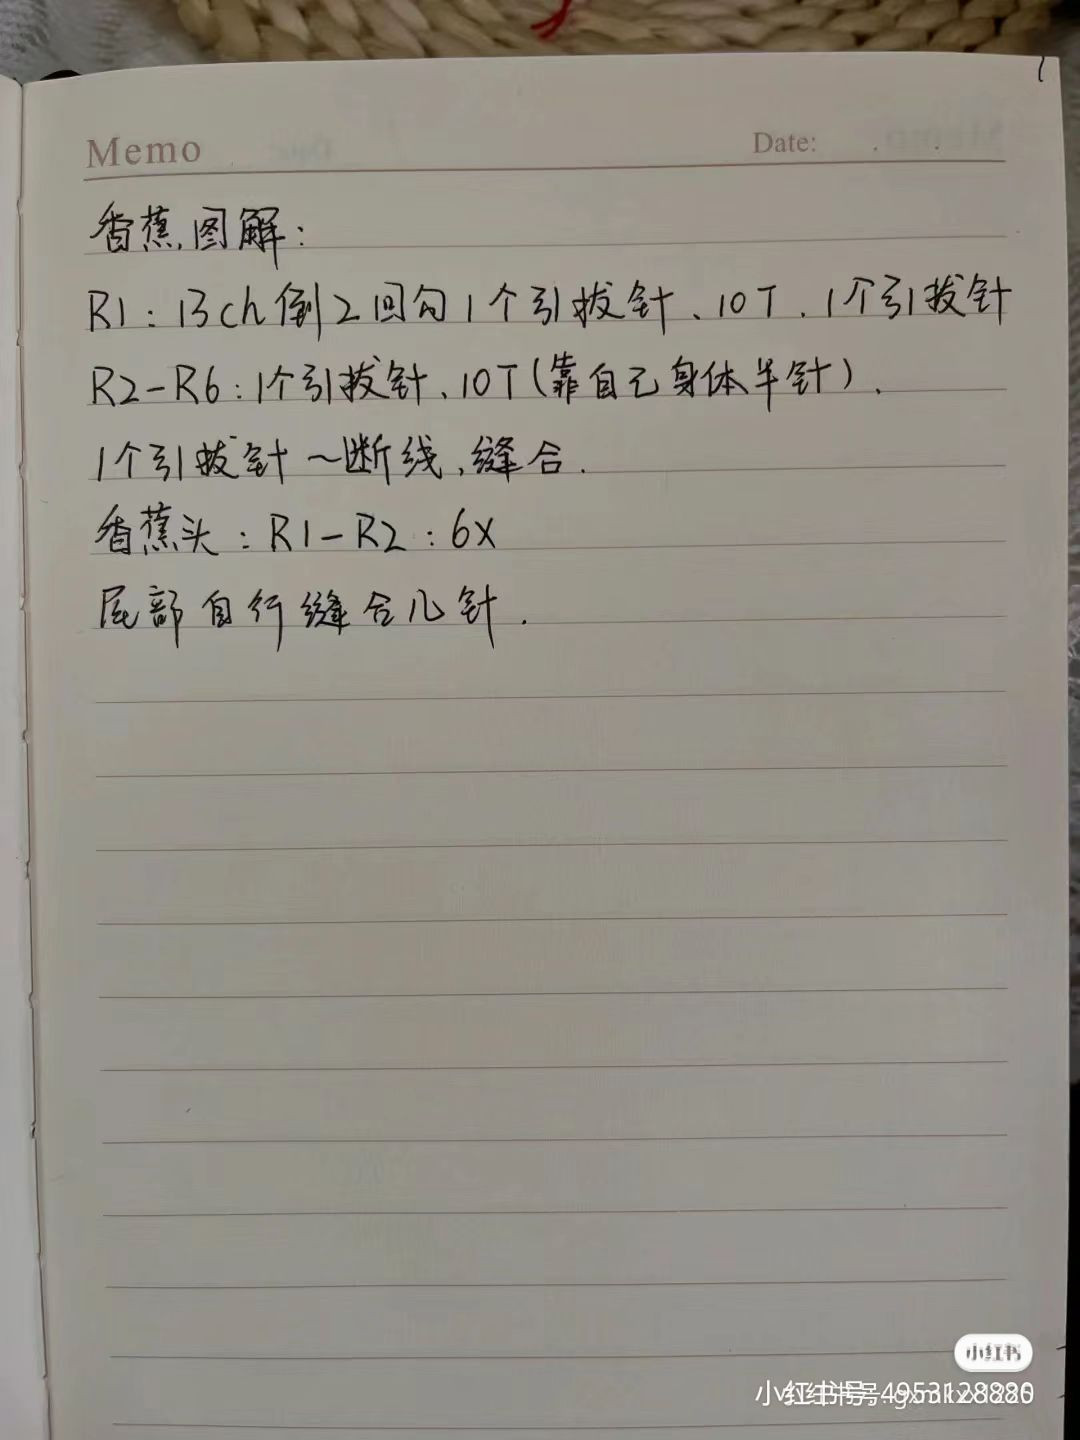 Memo Date:
香蕉图解：
R1：13ch倒2回勾1个引拔针、10T、1个引拔针
R2-R6：1个引拔针、10T(靠自己身体半针)、
1个引拔针～断线，缝合.
香蕉头：R1-R2：6X
尾部自行缝合几针.
小红书
小红书号:4953128880